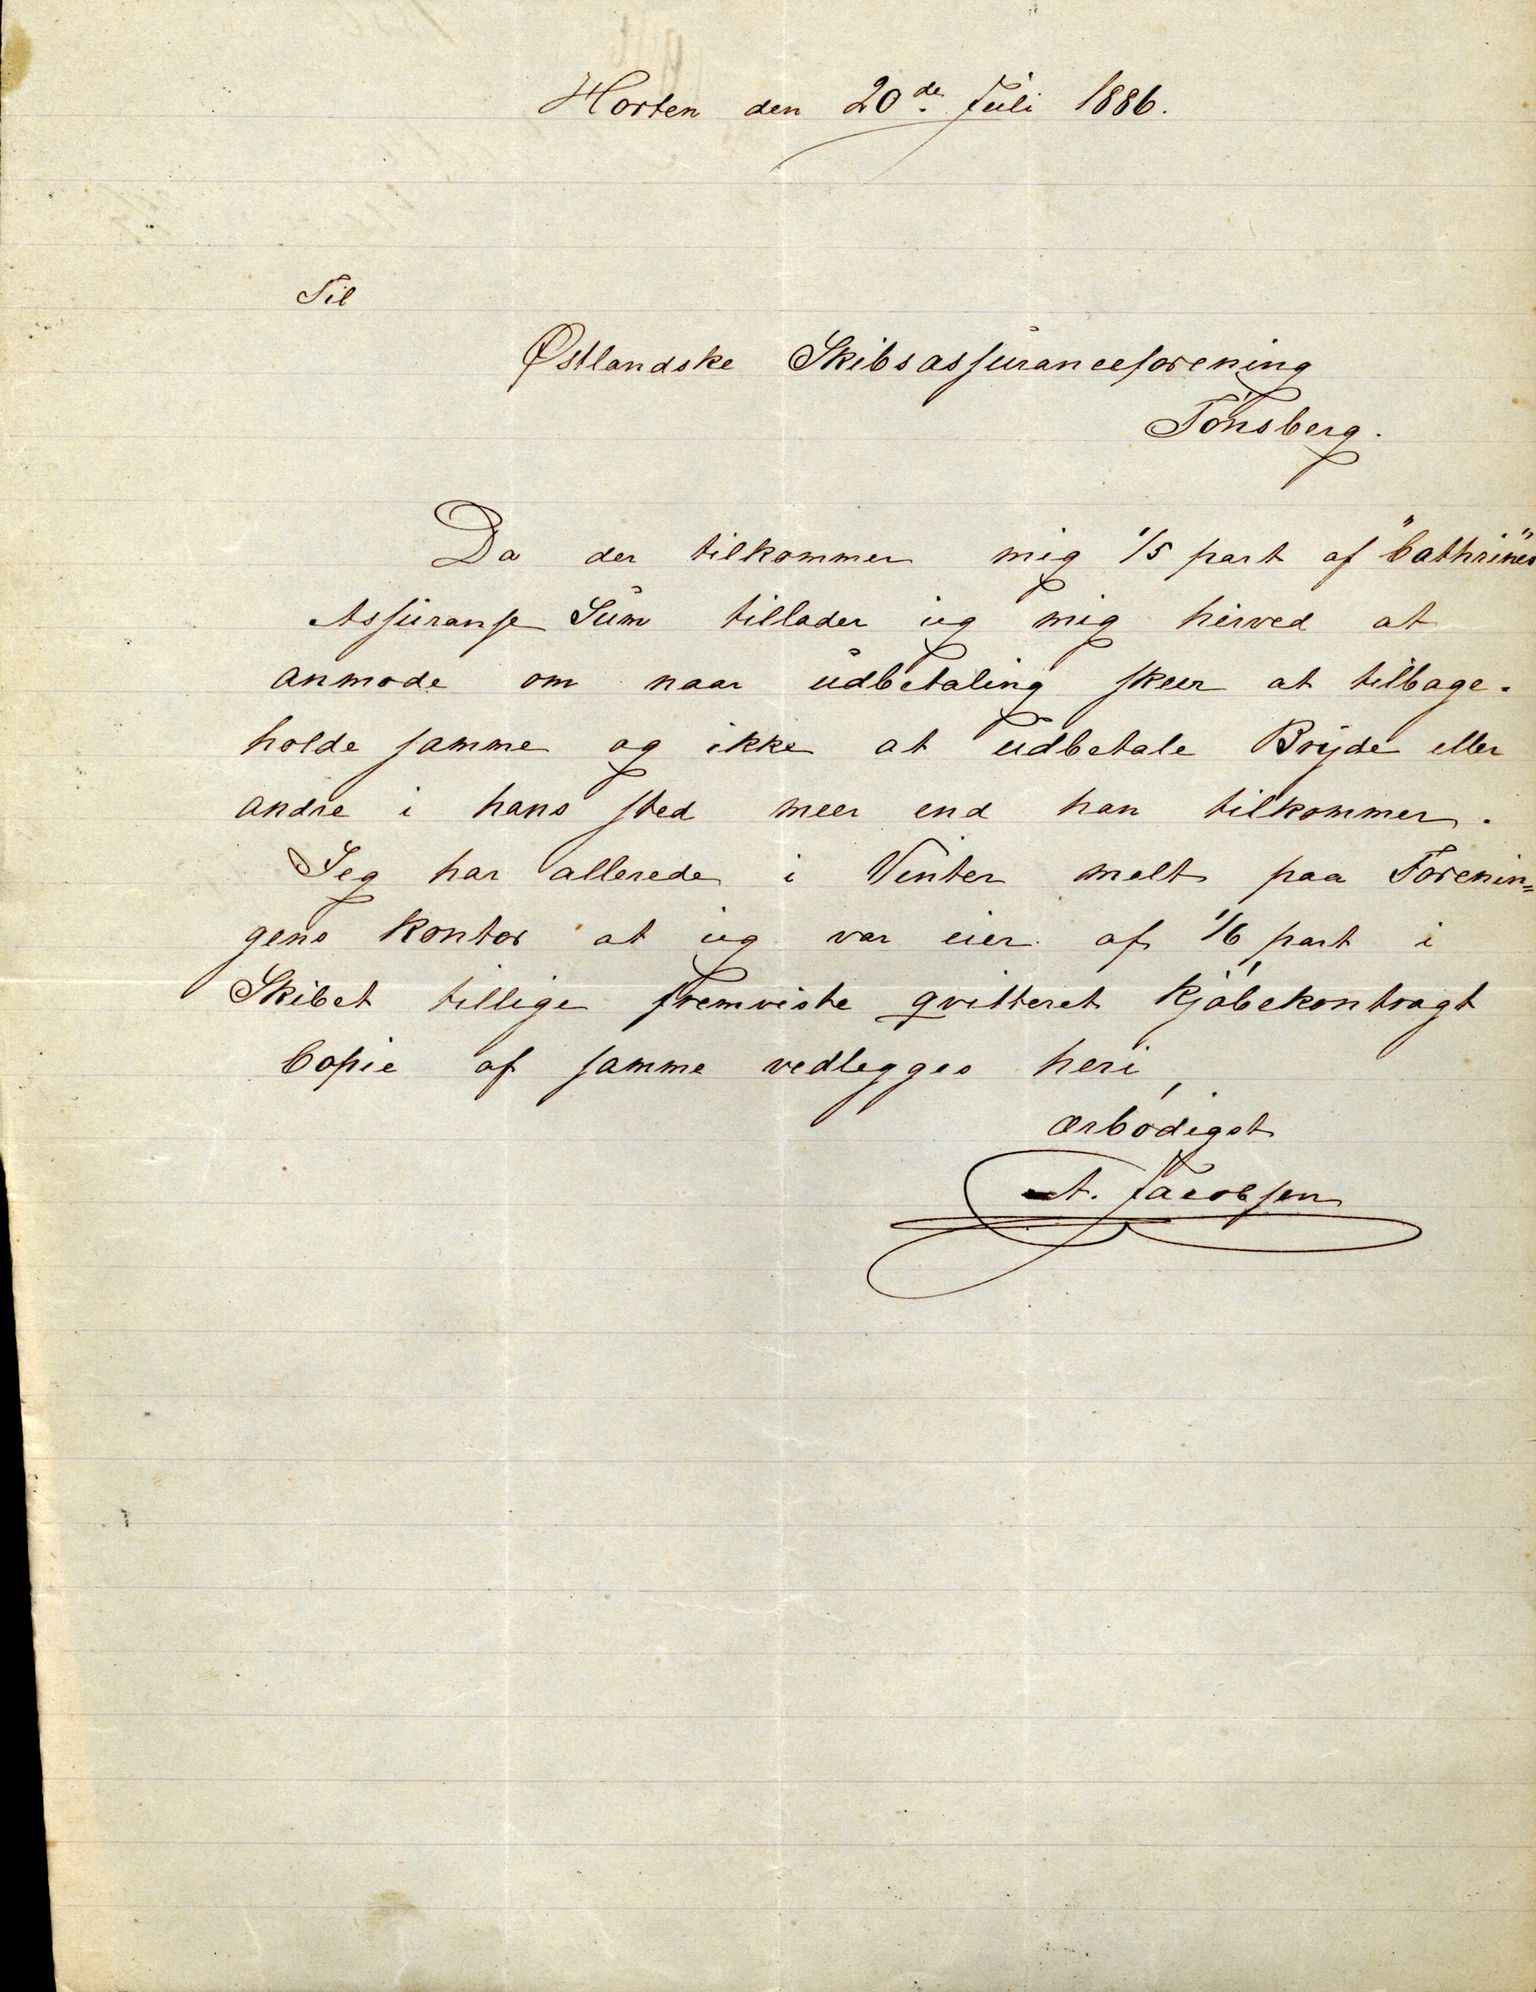 Horten den 20de Juli 1886.
Til
Østlandske Skibsassuranceforening
Tönsberg.
Da der tilkommer mig 1/5 part af "Cathrines"
Assuranse Sum tillader jeg mig herved at
anmode om naar udbetaling skeer at tilbage-
holde samme og ikke at udbetale Bryde eller
andre i hans sted meer end han tilkommer.
Jeg har allerede i Vinter melt paa Forenin=
gens Kontor at jeg var eier af 1/6 part i
Skibet tillige fremviste qvitteret Kjöbekontragt
Copie af samme vedlegges heri,
ærbödigst
A. Jacobsen